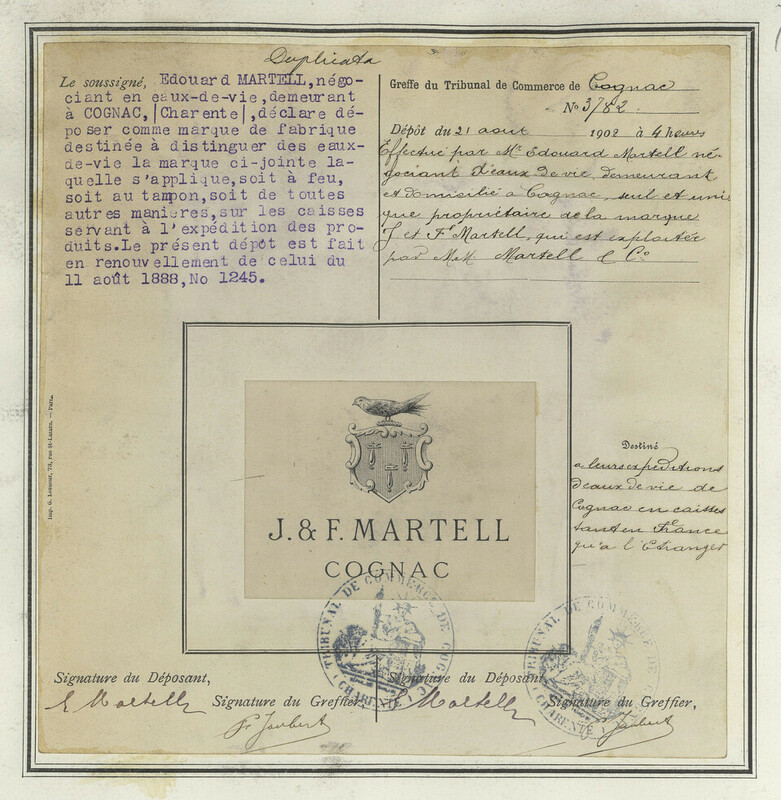 Duplicata
Le soussigné, Edouard MARTELL, négo-
ciant en eaux-de-vie, demeurant
à COGNAC, |Charente|, déclare dé-
poser comme marque de fabrique
destinée à distinguer des eaux-
de-vie la marque ci-jointe la-
quelle s'applique, soit à feu,
soit au tampon, soit de toutes
autres manières, sur les caisses
servant à l'expédition des pro-
duits. Le présent dépôt est fait
en renouvellement de celui du
11 août 1888, No 1245.
Greffe du Tribunal de Commerce de Cognac
No 3782
Dépôt du 21 aout 1902 à 4 heures
Effectué par Mr Edouard Martell né-
gociant d'eaux de vie, demeurant
et domicilié à Cognac, seul et uni
que propriétaire de la marque
J et F. Martell, qui est exploitée
par MM Martell & Co
J. & F. MARTELL
COGNAC
Destiné
a leurs expéditions
d'eaux de vie de
Cognac en caisses
tant en France
qu'a l'Etranger
TRIBUNAL DE COMMERCE DE COGNAC
(CHARENTE)
TRIBUNAL DE COMMERCE DE
CHARENTE
Signature du Déposant,
E Martell
Signature du Greffier,
Fr Joubert
Signature du Déposant,
E Martell
Signature du Greffier,
Fr Joubert